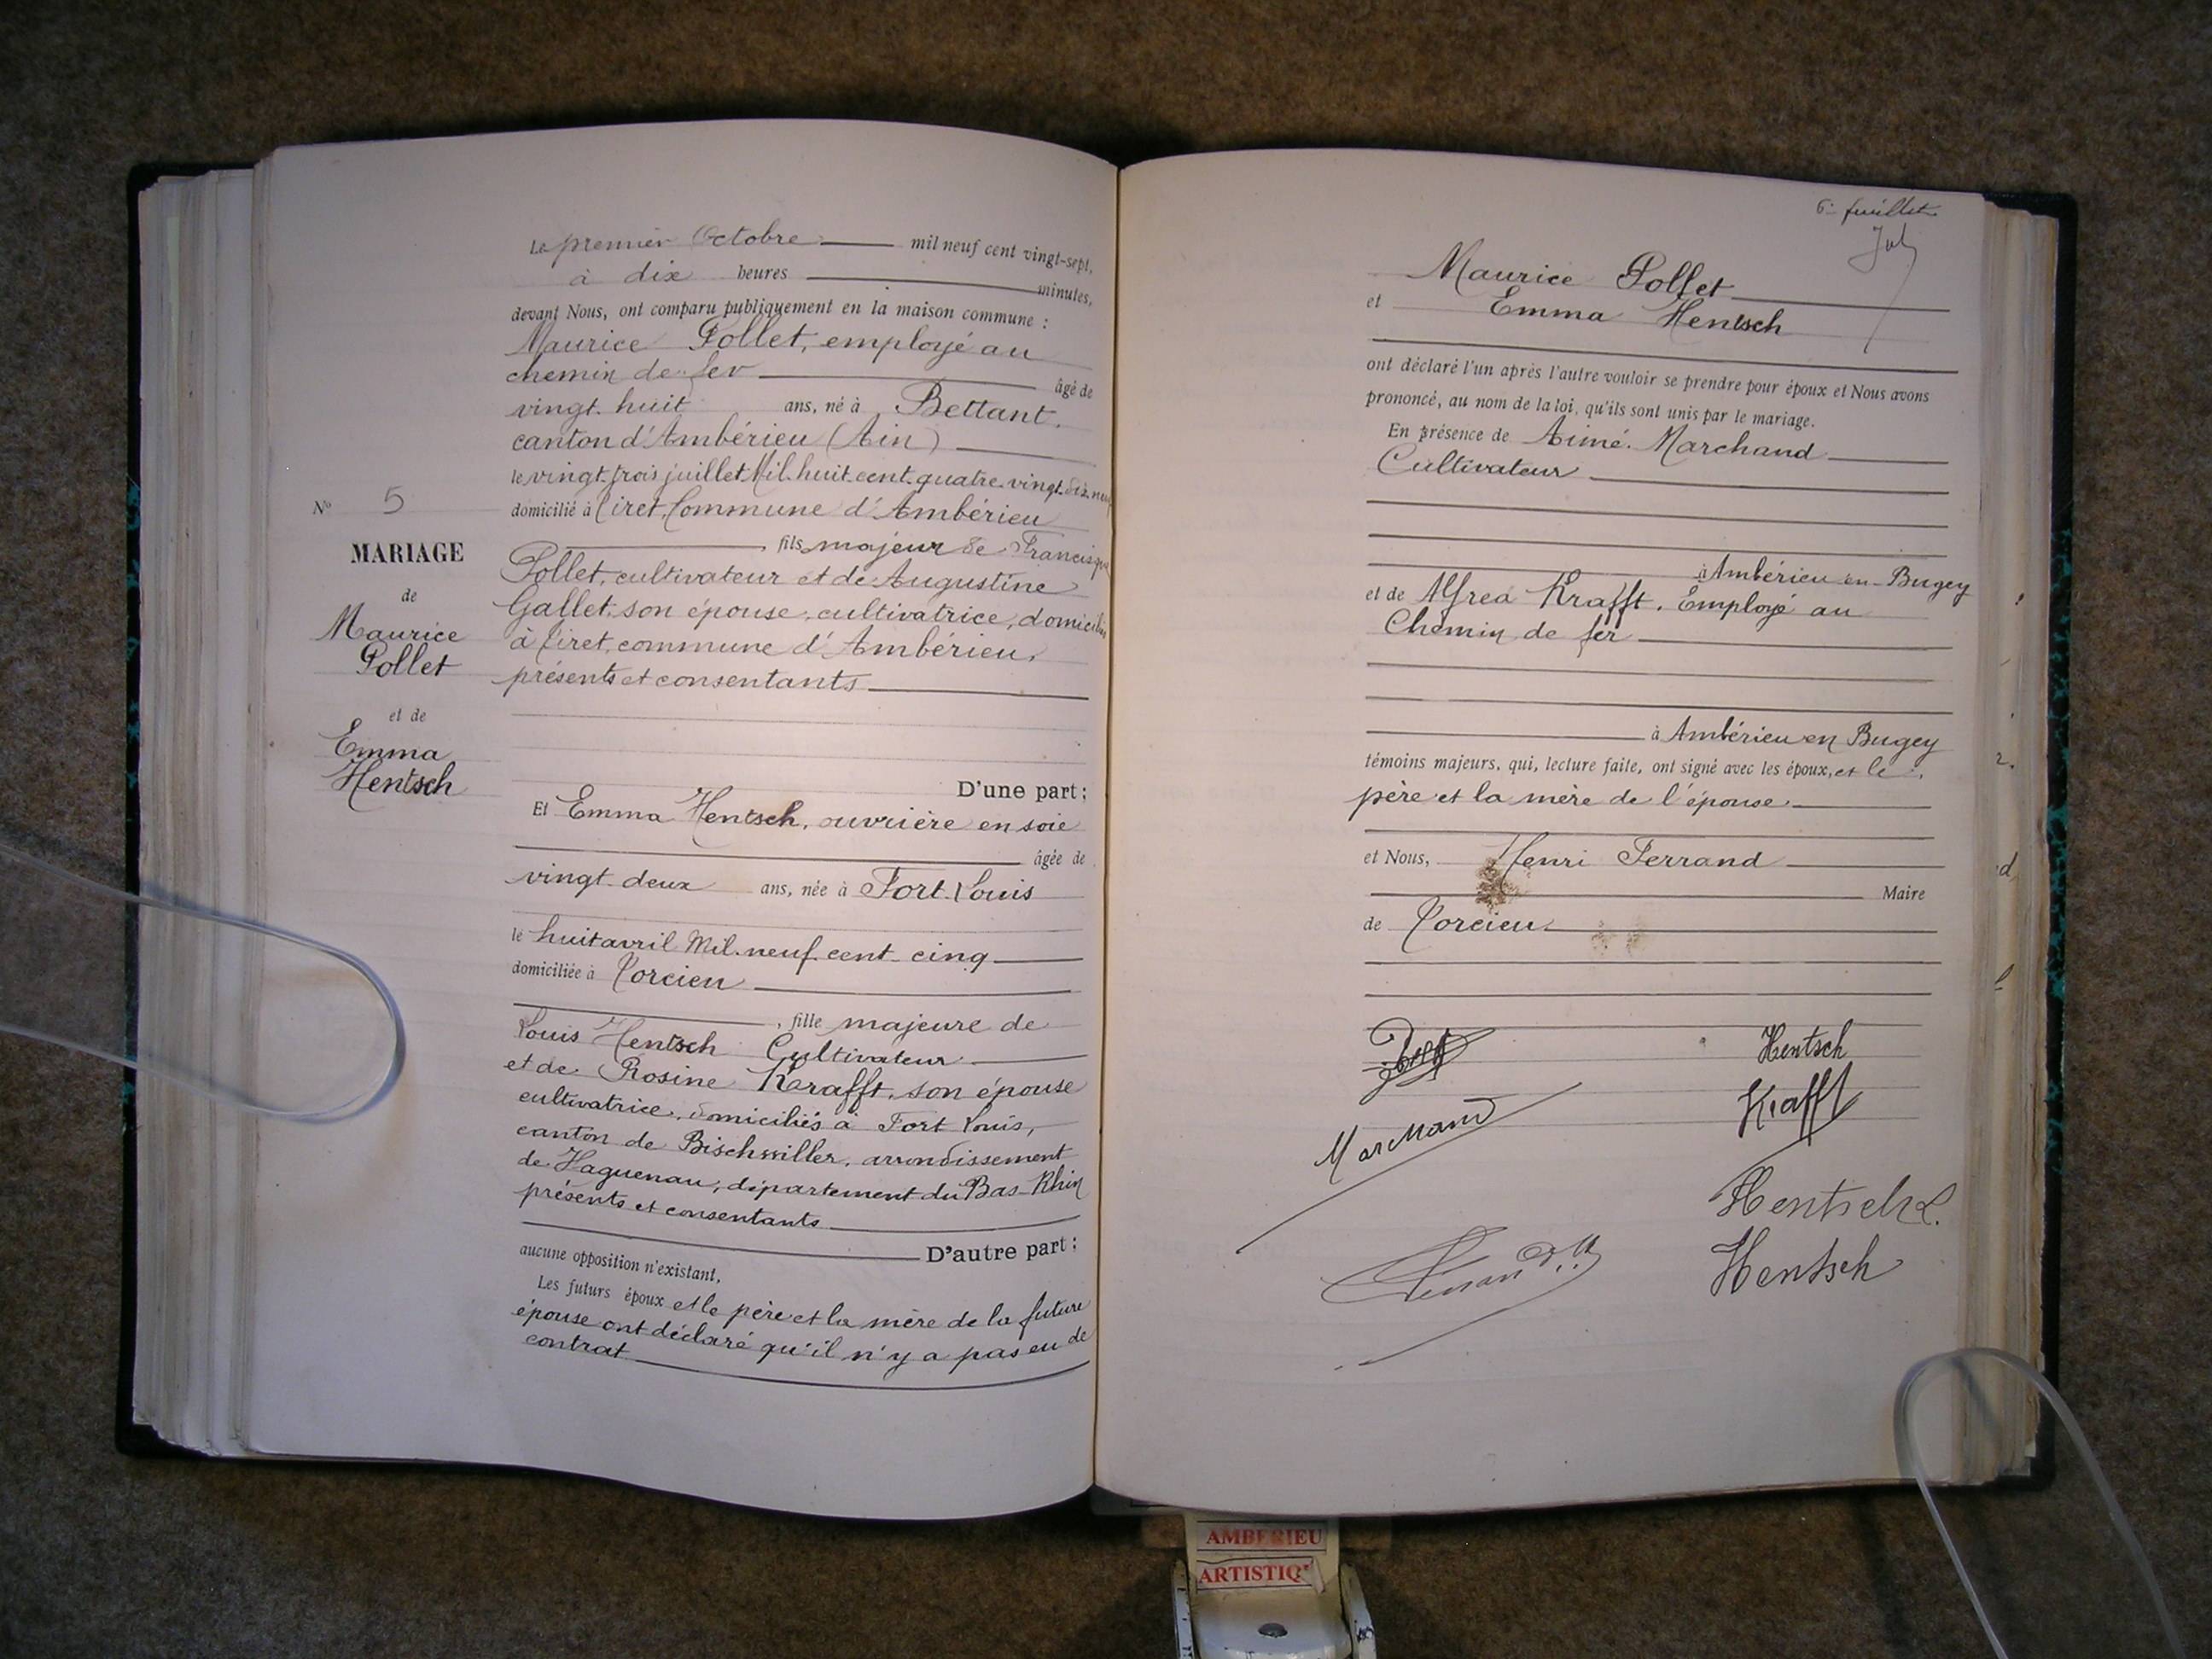 Le premier Octobre mil neuf cent vingt-sept,
à dix heures minutes,
devant Nous, ont comparu publiquement en la maison commune :
Maurice Pollet, employé au
chemin de fer âgé de
vingt-huit ans, né à Bettant,
canton d'Ambérieu (Ain)
le vingt-trois juillet Mil-huit-cent-quatre-vingt-dix-neuf
domicilié à Tiret, Commune d'Ambérieu
, fils majeur de Francisque
Pollet, cultivateur et de Augustine
Gallet, son épouse, cultivatrice, domiciliés
à Tiret, commune d'Ambérieu,
présents et consentants
D'une part ;
Et Emma Hentsch, ouvrière en soie
âgée de
vingt-deux ans, née à Fort-Louis
le huit avril Mil-neuf-cent-cinq
domiciliée à Torcieu
, fille majeure de
Louis Hentsch Cultivateur
et de Rosine Krafft, son épouse
cultivatrice, domiciliés à Fort Louis,
canton de Bischwiller, arrondissement
de Haguenau, département du Bas-Rhin
présents et consentants
D'autre part ;
aucune opposition n'existant,
Les futurs époux et le père et la mère de la future
épouse ont déclaré qu'il n'y a pas eu de
contrat
N° 5
MARIAGE
de
Maurice
Pollet
et de
Emma
Hentsch
6e feuillet
Maurice Pollet
et Emma Hentsch
ont déclaré l'un après l'autre vouloir se prendre pour époux et Nous avons
prononcé, au nom de la loi, qu'ils sont unis par le mariage.
En présence de Aimé Marchand
Cultivateur
à Ambérieu-en-Bugey
et de Alfred Krafft, Employé au
Chemin de fer
à Ambérieu en Bugey
témoins majeurs, qui, lecture faite, ont signé avec les époux, et le
père et la mère de l'épouse
et Nous, Henri Ferrand
Maire
de Torcieu
Hentsch
Krafft
Marchand
Hentsch L.
Ferrand H
Hentsch
AMBERIEU
ARTISTIQ